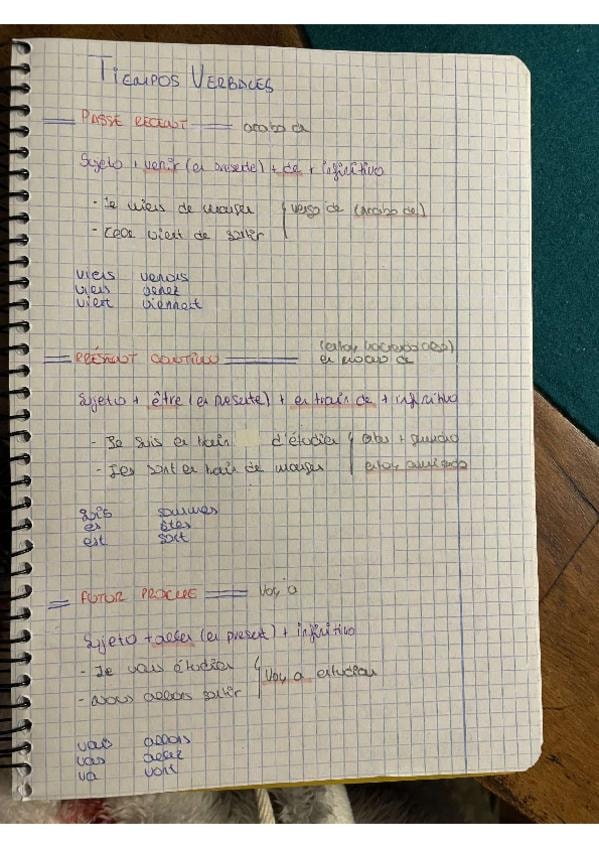 TIEMPOS VERBALES
PASSÉ RECENT acabo de
Sujeto + venir (en presente) + de + infinitivo
- Je viens de manger vengo de (acabo de)
- Léa vient de sortir
viens venons
viens venez
vient viennent
(estoy haciendo algo)
PRÉSENT CONTINU en proceso de
Sujeto + être (en presente) + en train de + infinitivo
- Je suis en train d'étudier estar + gerundio
- Ils sont en train de manger estoy comiendo
suis sommes
es êtes
est sont
FUTUR PROCHE voy a
Sujeto + aller (en present) + infinitivo
- Je vais étudier Voy a estudiar
- Nous allons sortir
vais allons
vas allez
va vont